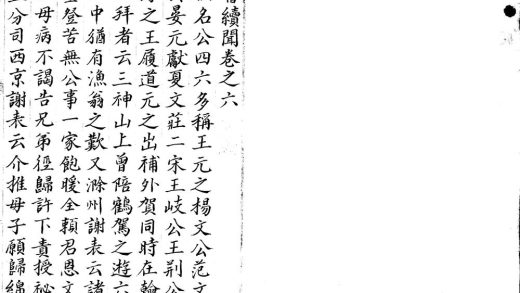 續聞卷之六
名公四六多稱王元之楊文公范文
晏元獻夏文莊二宋王岐公王荊公
之王履道元之出補外賀同時在翰
拜者云三神山上曾陪鶴駕之遊六
中猶有漁翁之歎又滁州謝表云諸
豋苦無公事一家飽暖全賴君恩文
母病不謁告兄弟徑歸許下責授祕
分司西京謝表云介推母子願歸綿